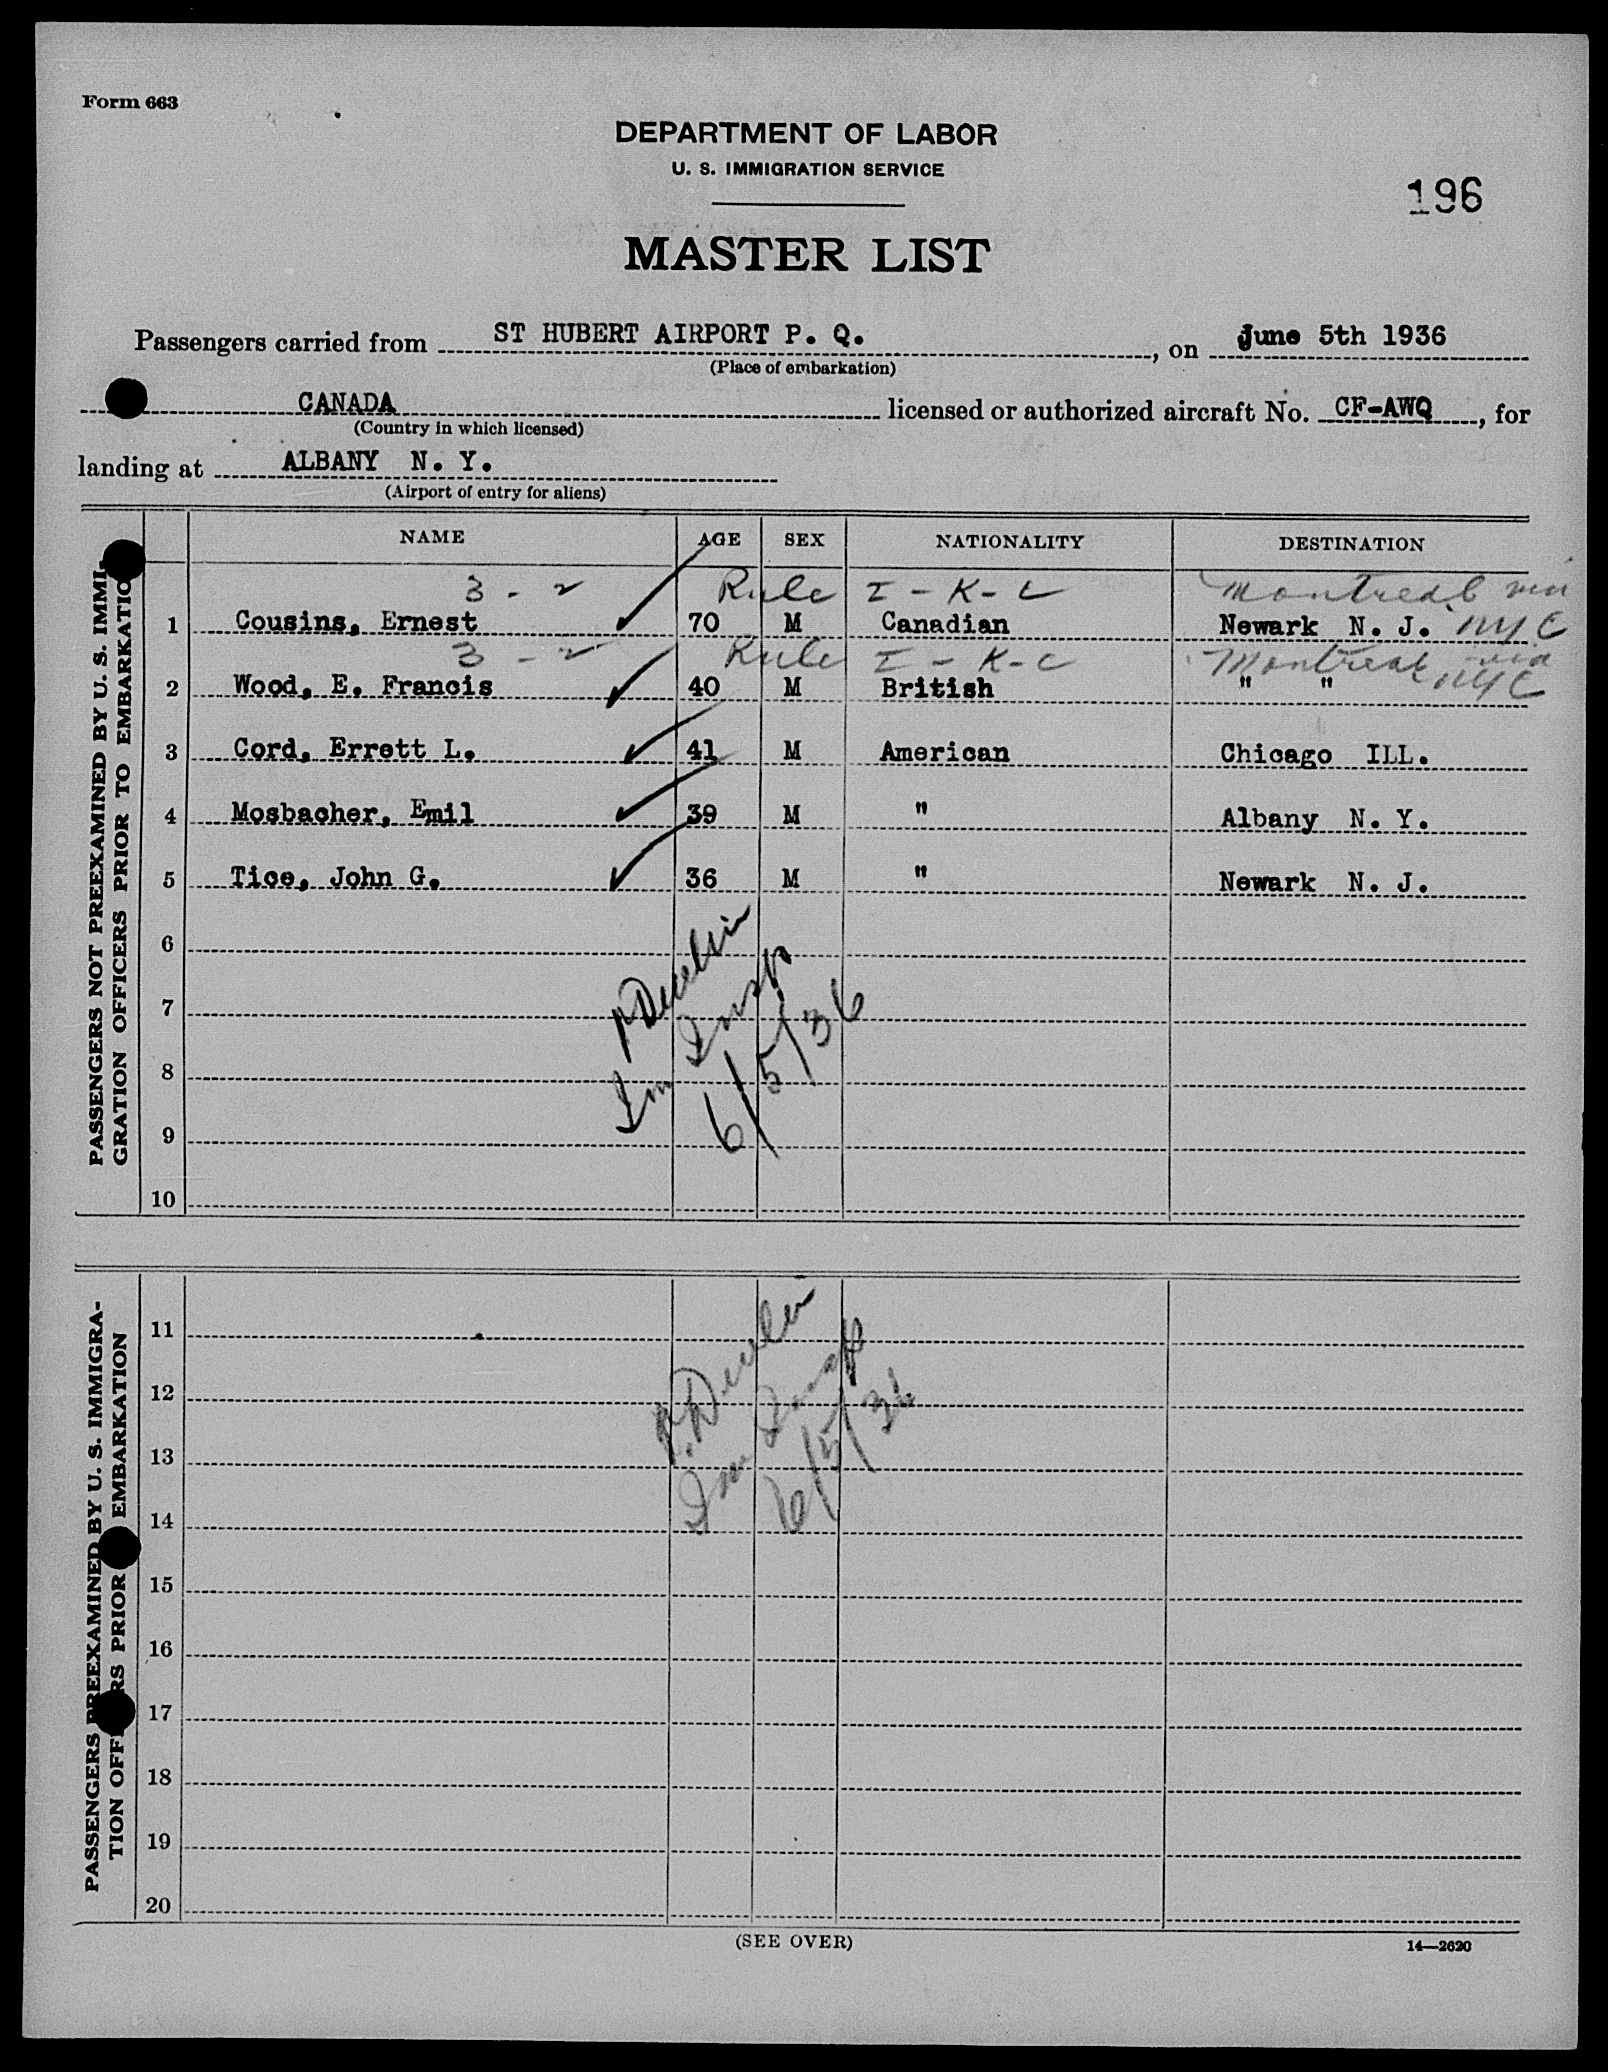 Form 663
DEPARTMENT OF LABOR
U. S. IMMIGRATION SERVICE
196
MASTER LIST
Passengers carried from ST HUBERT AIRPORT P. Q. , on June 5th 1936
(Place of embarkation)
CANADA licensed or authorized aircraft No. CF-AWQ , for
(Country in which licensed)
landing at ALBANY N. Y.
(Airport of entry for aliens)
PASSENGERS NOT PREEXAMINED BY U. S. IMMI-
GRATION OFFICERS PRIOR TO EMBARKATIO
NAME AGE SEX NATIONALITY DESTINATION
3 - 2 Rule I - K - C Montreal via
1 Cousins, Ernest 70 M Canadian Newark N. J. NYC
3 - 2 Rule I - K - C Montreal via
2 Wood, E. Francis 40 M British " " NYC
3 Cord, Errett L. 41 M American Chicago ILL.
4 Mosbacher, Emil 39 M " Albany N. Y.
5 Tice, John G. 36 M " Newark N. J.
6
7
8
9
10
Imm Insp
6/5/36
PASSENGERS PREEXAMINED BY U. S. IMMIGRA-
TION OFF RS PRIOR EMBARKATION
11
12
13
14
15
16
17
18
19
20
Imm Insp
6/5/36
(SEE OVER)
14—2620